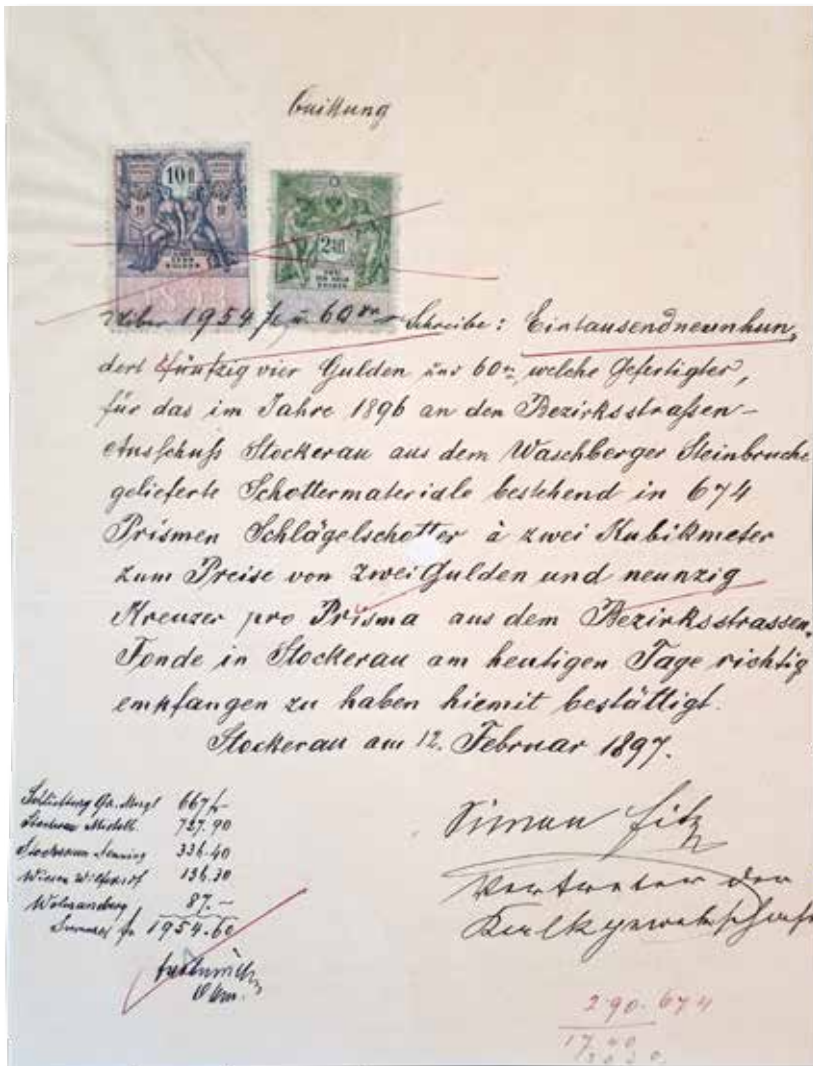 Quittung
10 fl
10
10
ZEHN
GULDEN
2 50
GULDEN
Über 1954 fl u. 60 kr Schreibe: Eintausendneunhun„
dert fünfzig vier Gulden und 60 kr, welche Gefertigter,
für das im Jahre 1896 an den Bezirksstraßen-
Ausschuß Stockerau aus dem Waschberger Steinbruche
gelieferte Schottermateriale bestehend in 674
Prismen Schlägelschotter à zwei Kubikmeter
zum Preise von zwei Gulden und neunzig
Kreuzer pro Prisma aus dem Bezirksstrassen„
Fonde in Stockerau am heutigen Tage richtig
empfangen zu haben hiemit bestättigt.
Stockerau am 12. Februar 1897.
Gr. Mugl 667 fl
727.90
Stockerau Senning 336.40
Wiesen Wilfersdf 136.30
87.-
Summa fl 1954.60
Obm.
Simon Fitz
Vertreter der
Kalkgewerkschaft
2·90. 674
17 40